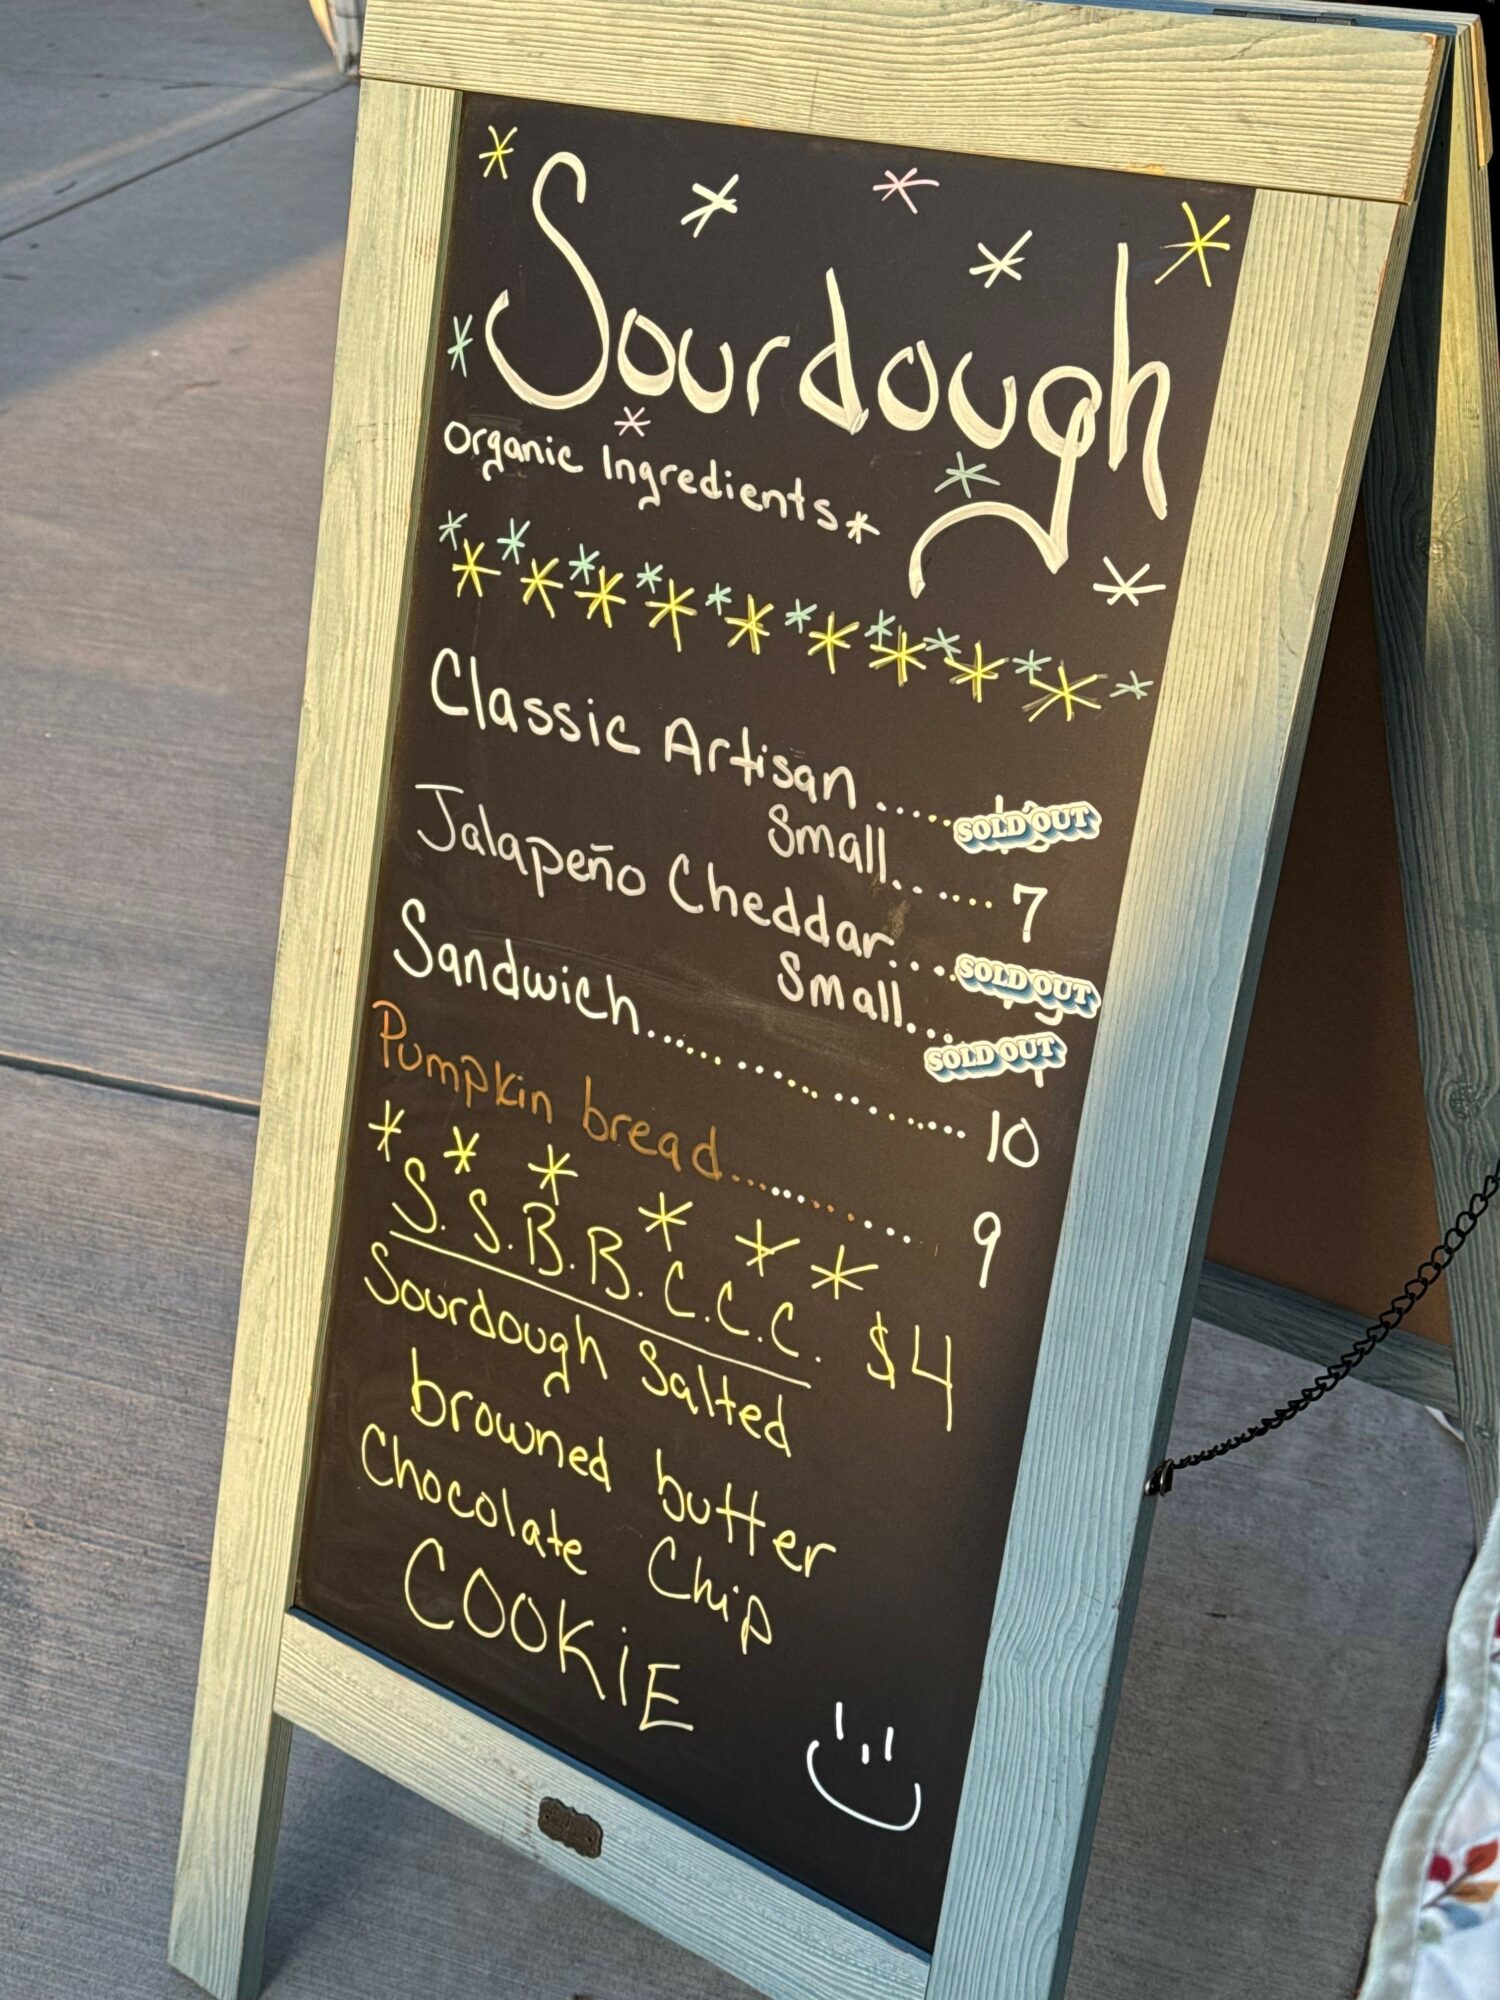 Sourdough
Organic Ingredients*
Classic Artisan ..... SOLD OUT
Small...... 7
Jalapeño Cheddar.... SOLD OUT
Small... SOLD OUT
Sandwich.................... 10
Pumpkin bread............... 9
S.S.B.B.C.C.C. $4
Sourdough Salted
browned butter
Chocolate Chip
COOKiE